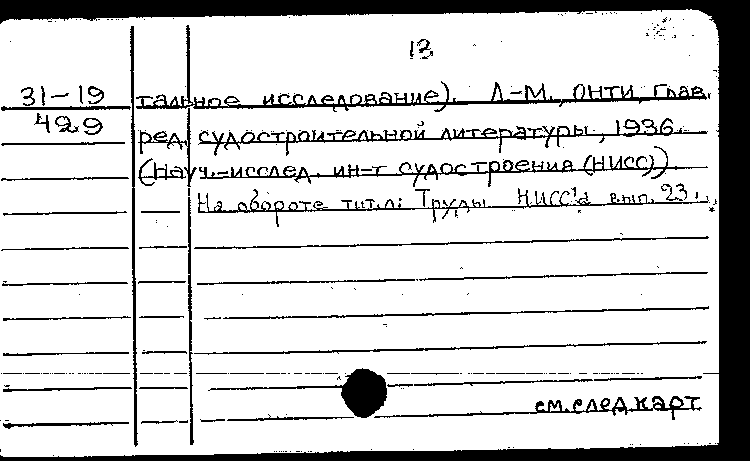 13
31-19 тальное исследование). Л.-М., ОНТИ, Глав.
429 ред. судостроительной литературы, 1936.
(Науч.-исслед. ин-т судостроения (НИСС)).
На обороте тит.л: Труды НИСС'а вып. 23.
см.след.карт